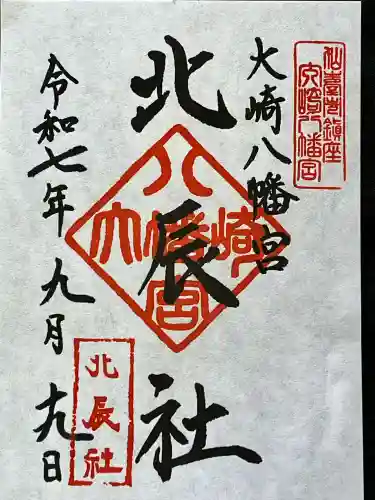 仙臺總鎮座
大崎八幡宮
大崎八幡宮
北辰社
八
大幡崎
宮
令和七年九月十九日
北辰社